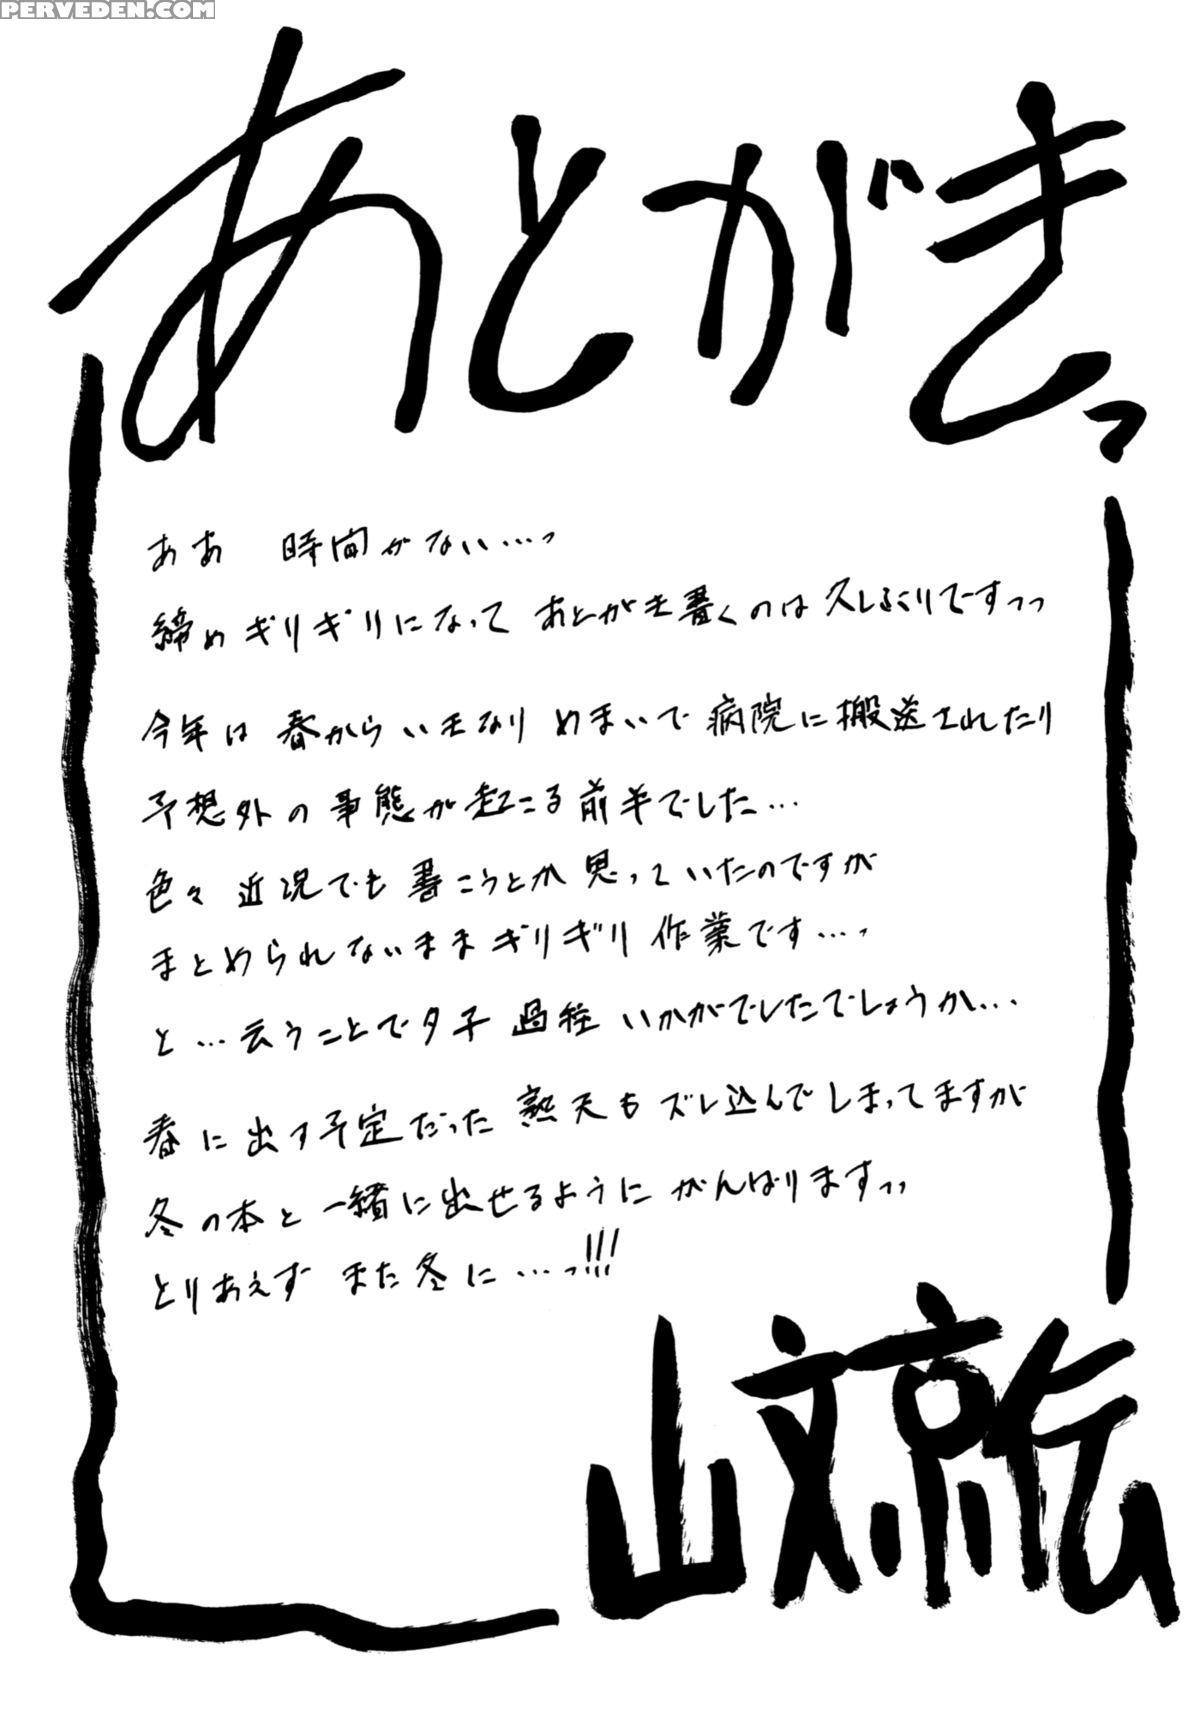 PERVEDEN.COM
あとがきっ
ああ 時間がない…っ
締めギリギリになって あとがき書くのは久しぶりですっっ
今年は 春からいきなり めまいで 病院に搬送されたり
予想外の 事態が起こる前半でした…
色々 近況でも 書こうとか 思っていたのですが
まとめられないまま ギリギリ 作業です…っ
と…云うことで夕子 過程 いかがでしたでしょうか…
春に出す予定だった 熟天も ズレ込んでしまってますが
冬の本と 一緒に出せるように がんばりますっっ
とりあえず また冬に…っ!!!
山文京伝